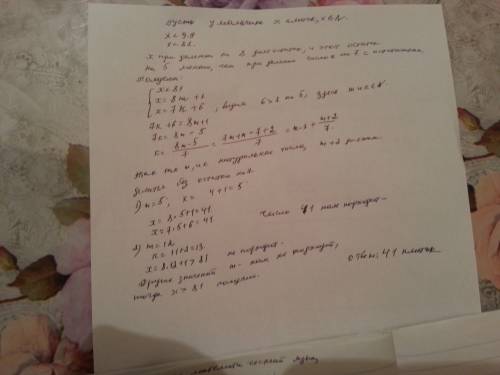 Пусть у мальчика x плиток, x ∈ N.
x < 9·9
x < 81.
x при делении на 8 даёт остаток, и этот остаток
на 5 меньше, чем при делении числа x на 7 =
Получаем:
x < 81
x = 8m + 1
x = 7k + 6, 6 > 1 на 5, здесь m и k ∈ N
7k + 6 = 8m + 1
7k = 8m - 5
k = (8m-5)/7 = (7m+m-7+2)/7 = m-1 + (m+2)/7.
Так как m, и k натуральные числа, m+2 должно
делиться без остатка на 7.
1) m = 5, k = 4+1 = 5
x = 8·5+1 = 41
x = 7·5+6 = 41 Число 41 нам подходит.
2) m = 12
k = 11+2 = 13
x = 8·12+1 > 81 не подходит.
Другие значения m нам не подходят,
тогда x > 81 получим. Ответ: 41 плиток